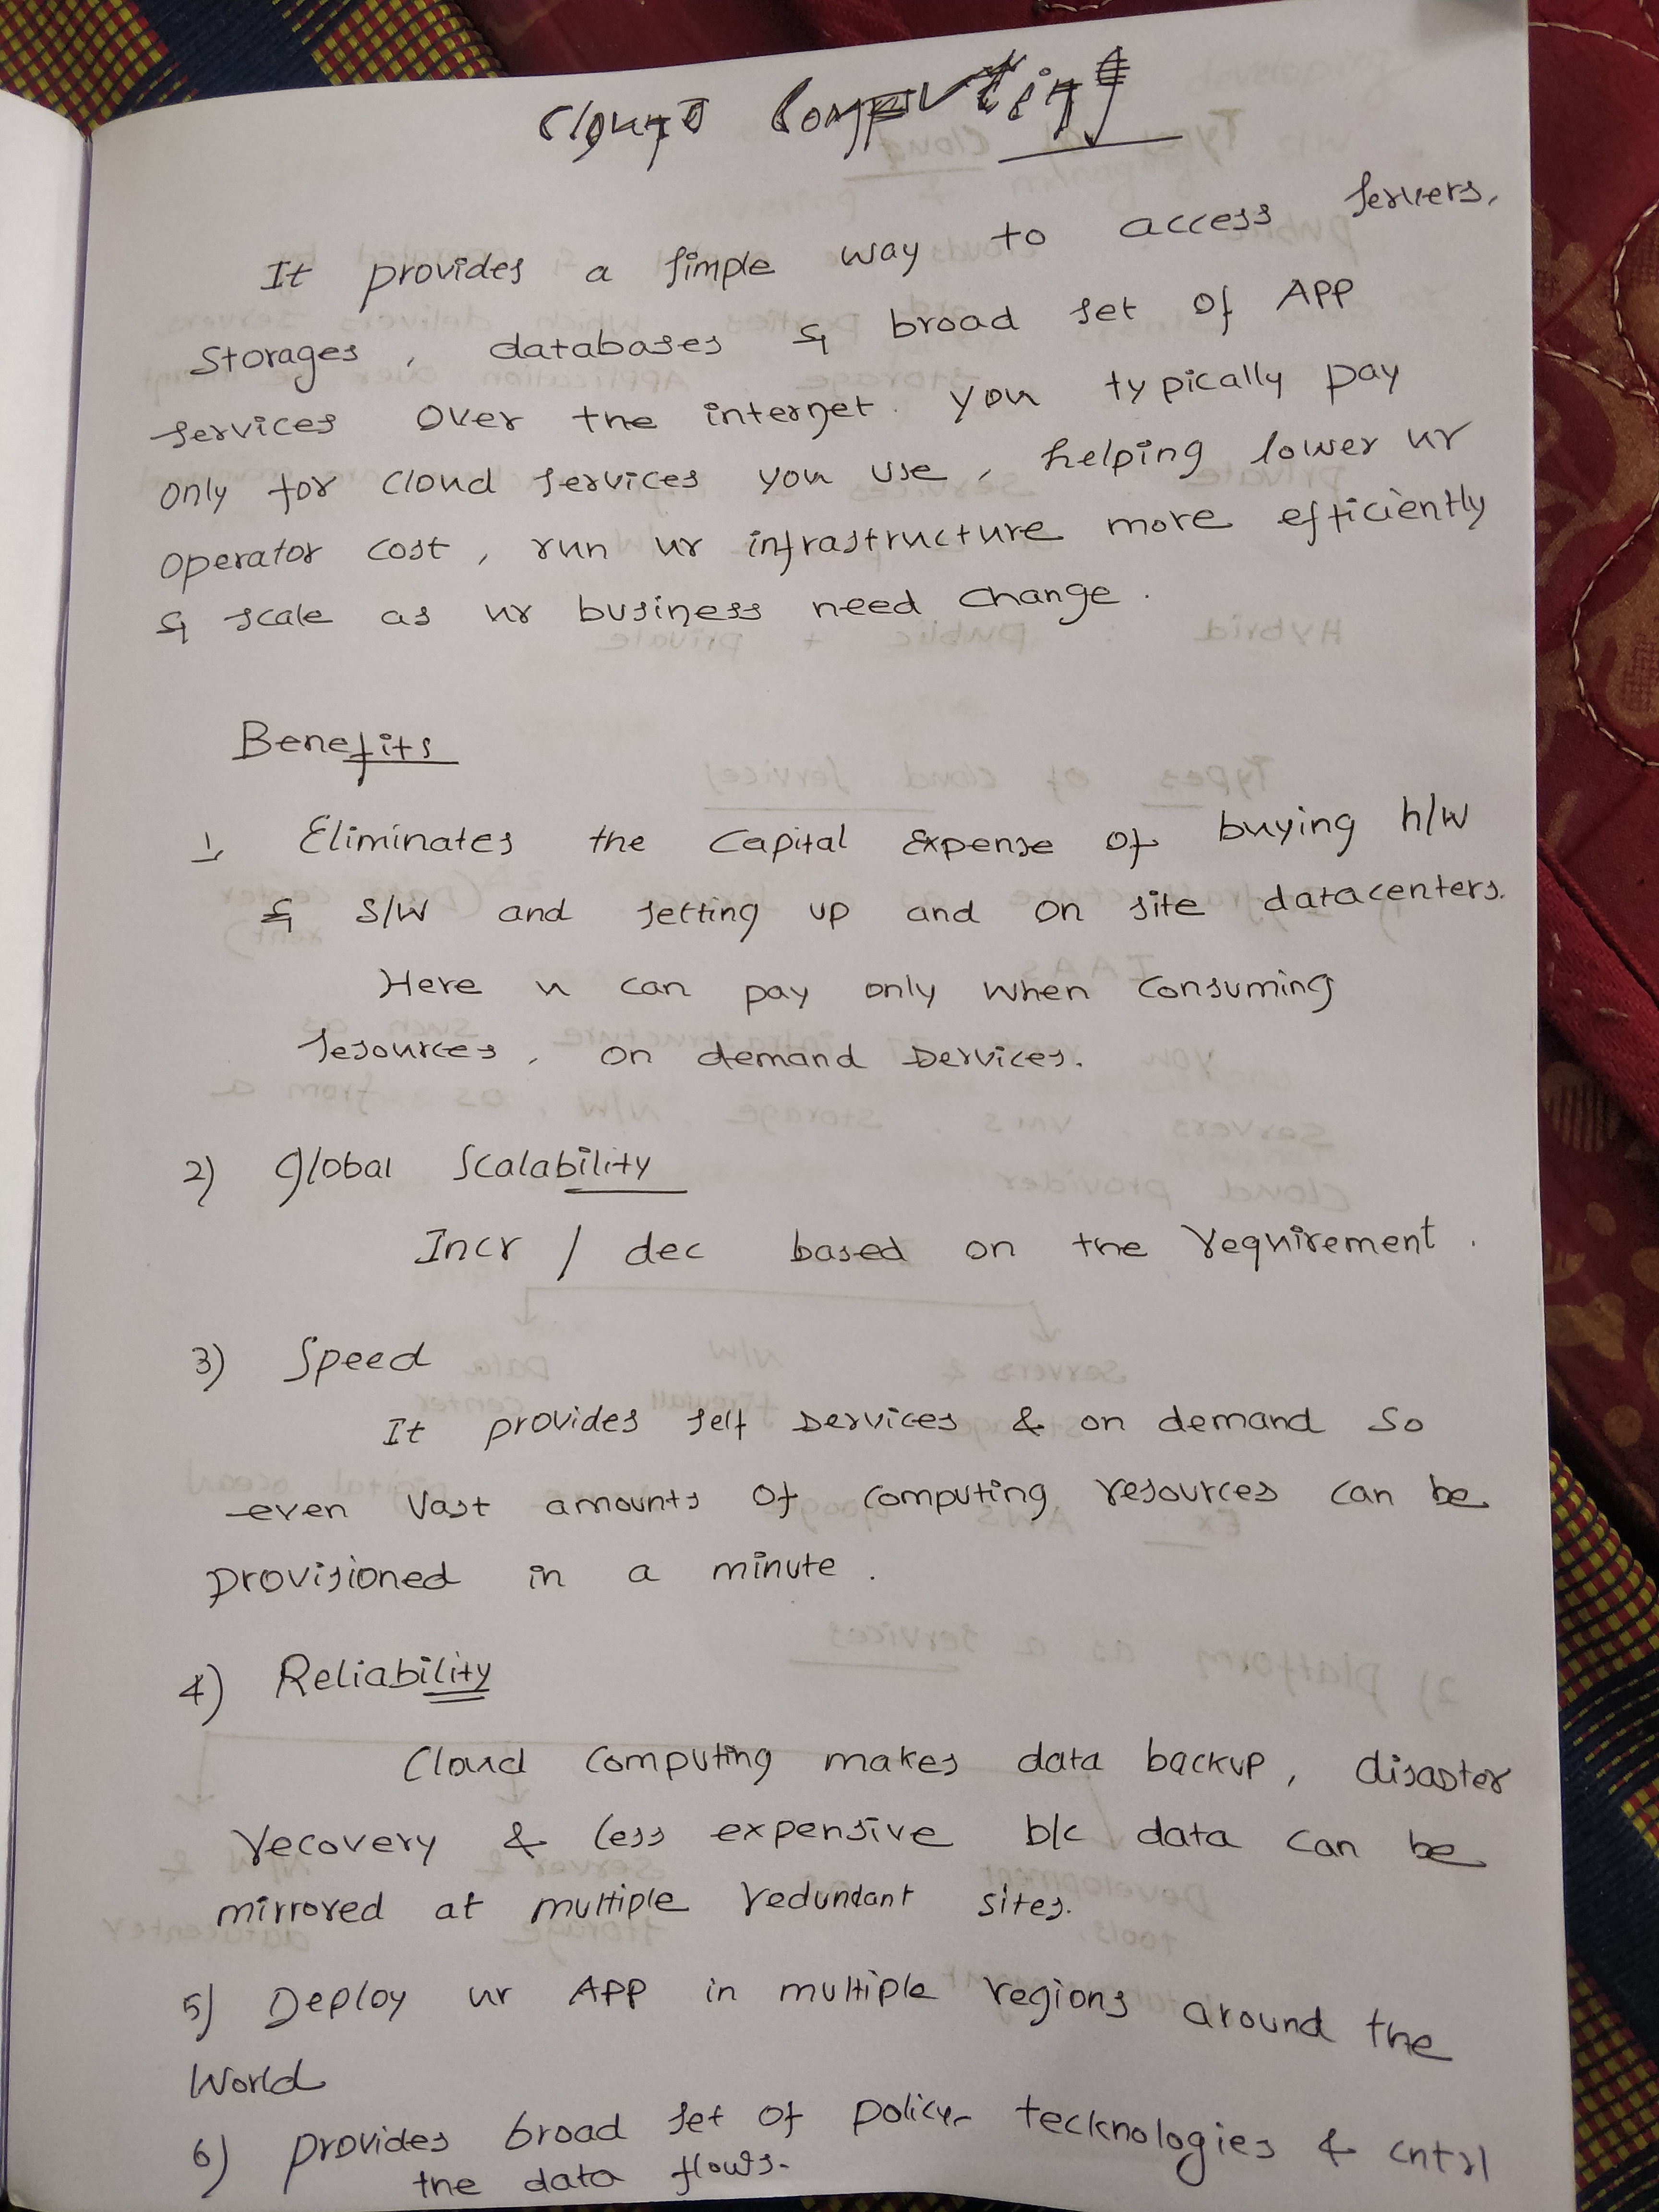 Cloud Computing
It provides a simple way to access servers,
storages, databases & broad set of APP
services over the internet. you typically pay
only for cloud services you use, helping lower ur
operator cost, run ur infrastructure more efficiently
& scale as ur business need change.
Benefits
1, Eliminates the Capital Expense of buying h/w
& s/w and setting up and on site datacenters.
Here u can pay only when consuming
resources, on demand services.
2) Global Scalability
Incr / dec based on the requirement.
3) Speed
It provides self services & on demand so
even vast amounts of computing resources can be
provisioned in a minute.
4) Reliability
Cloud computing makes data backup, disaster
recovery & less expensive b/c data can be
mirrored at multiple redundant sites.
5) Deploy ur APP in multiple regions around the
World
6) provides broad set of policy tecknologies & cntrl
the data flows.